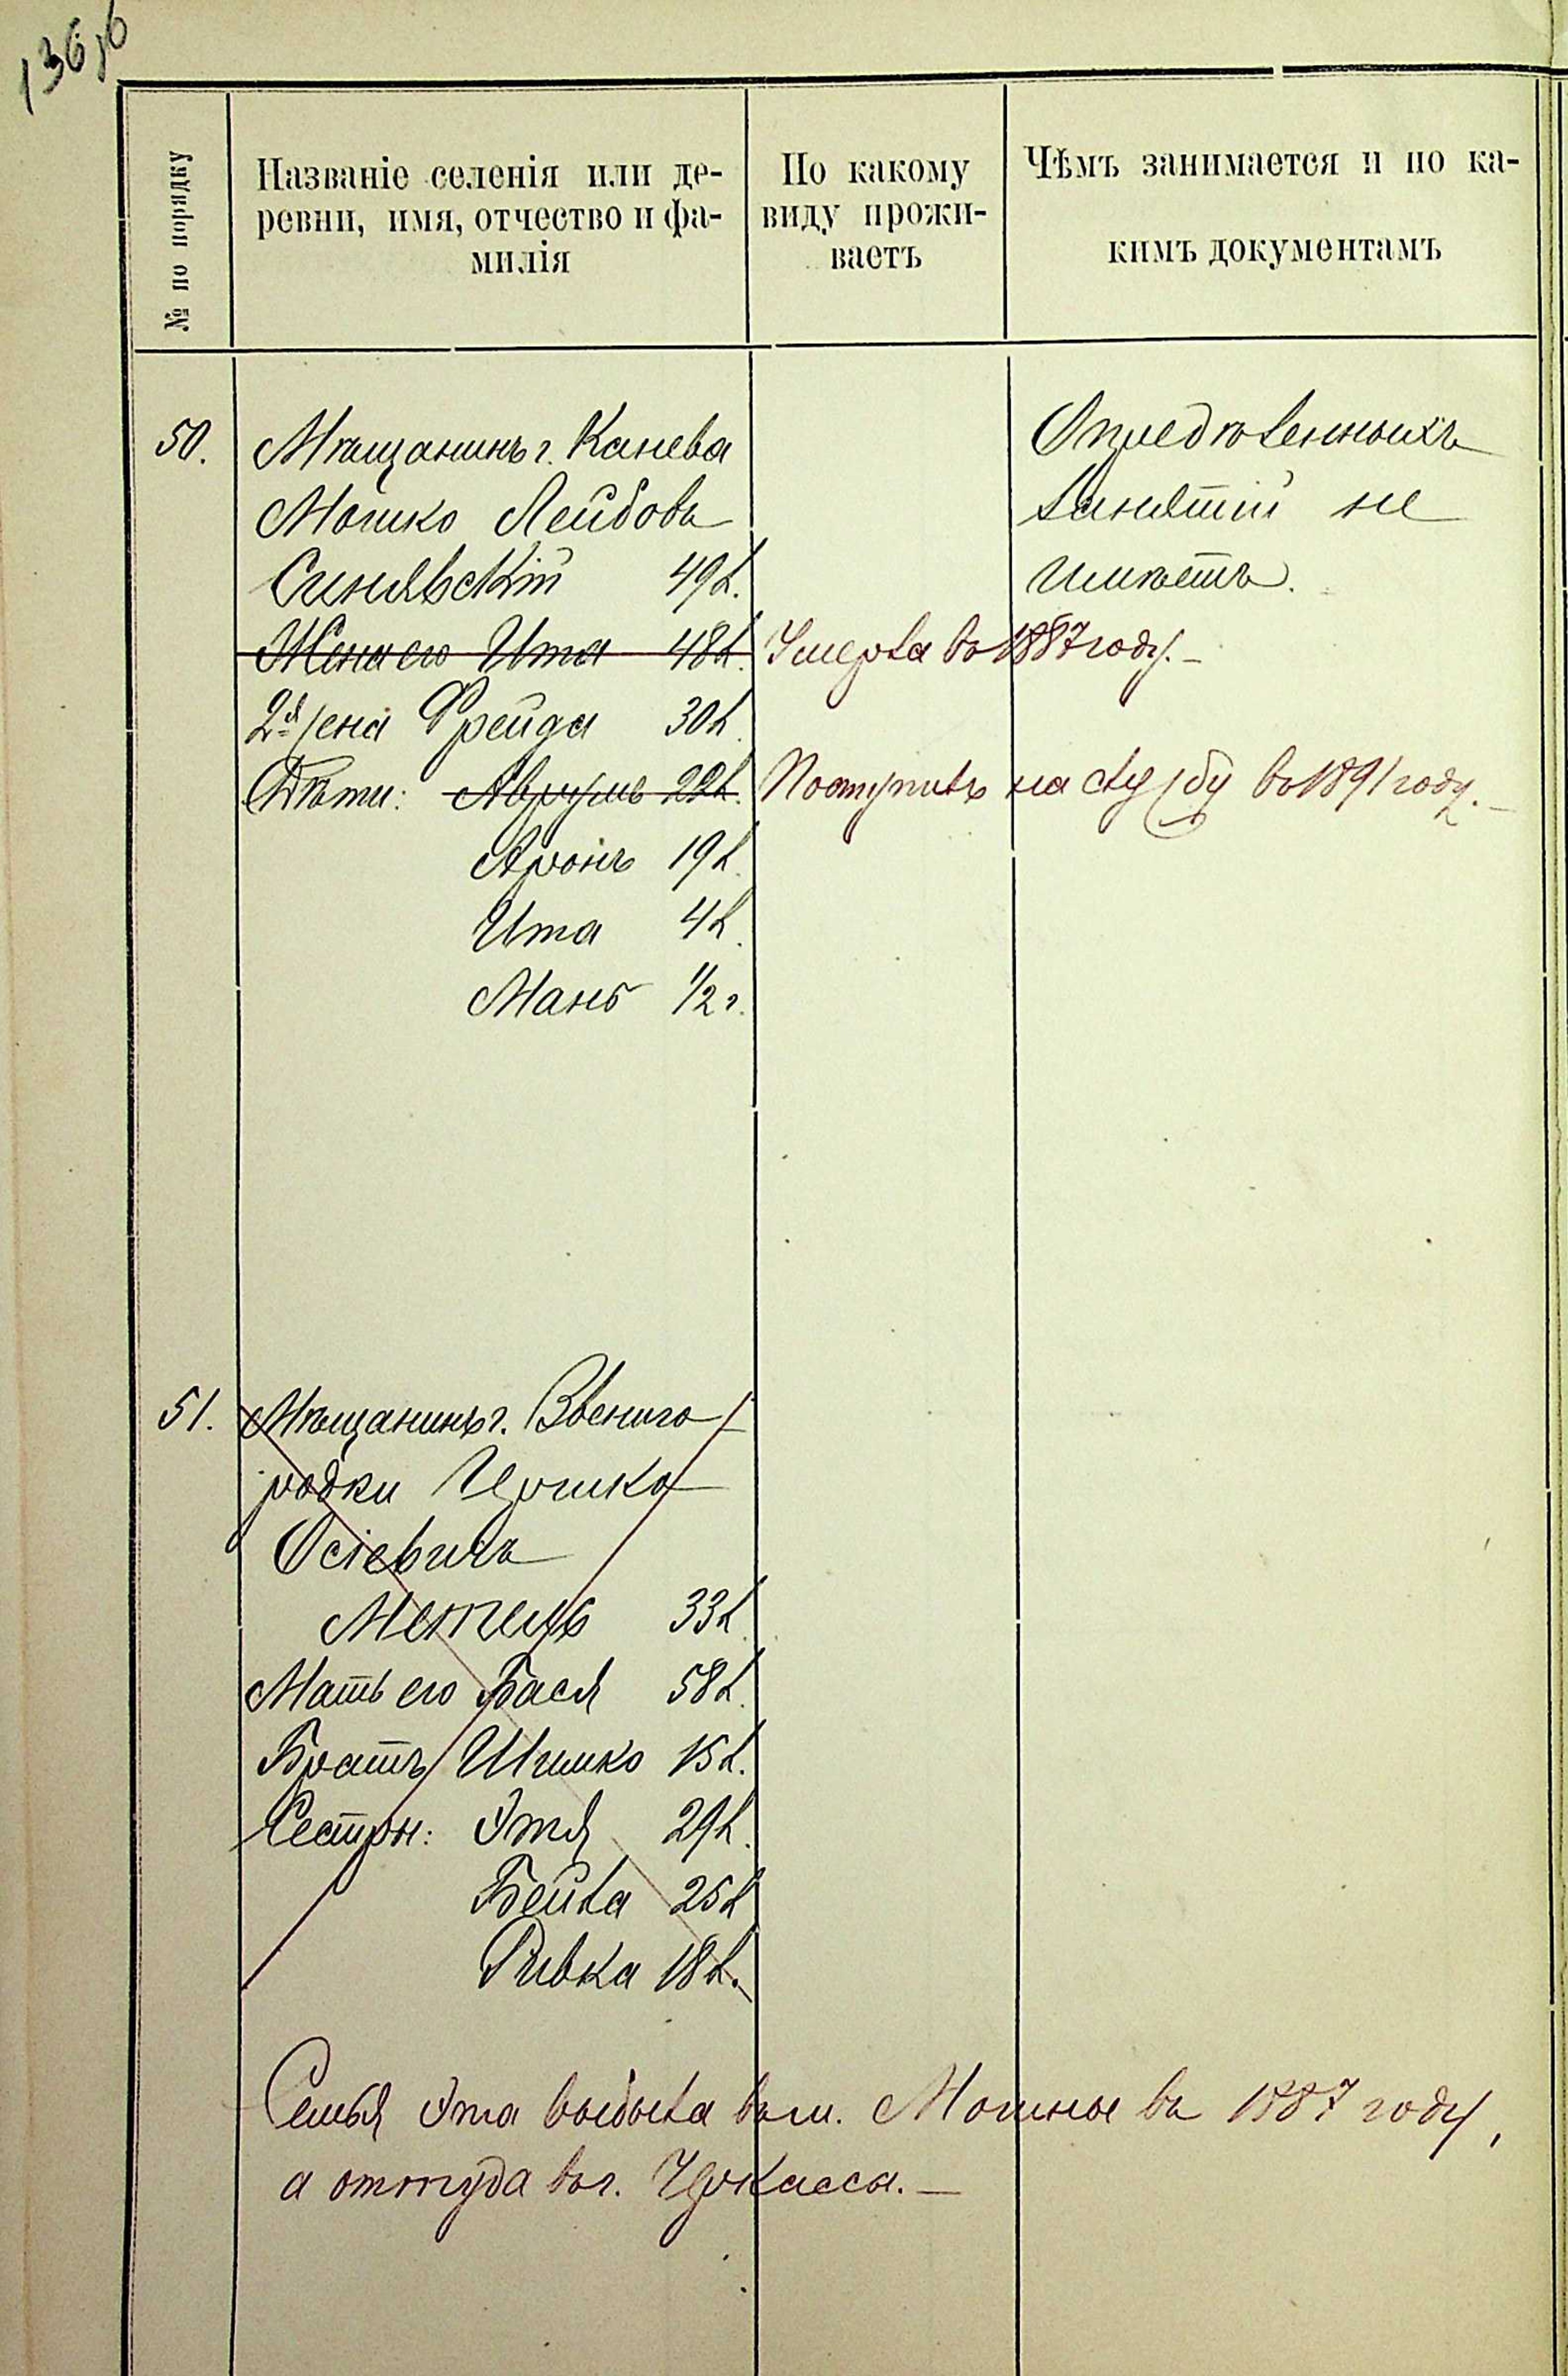 136об
№ по порядку
Названіе селенія или де-
ревни, имя, отчество и фа-
милія
По какому
виду прожи-
ваетъ
Чѣмъ занимается и по ка-
кимъ документамъ
50.
Мѣщанинъ г. Канева
Мошко Лейбовъ
Синявскій 49 л.
Жена его Ита 48 л.
Умерла въ 1887 году. –
2я жена Фрейда 30 л.
Дѣти: Аврумъ 22 л.
Поступилъ на службу въ 1891 году. –
Аронъ 19 л.
Ита 4 л.
Мань 1/2 г.
Опредѣленныхъ
занятій не
имѣетъ.
51.
Мѣщанинъ г. Звениго-
родки Ицшко
Осіевичъ
Метель 33 л.
Мать его Бася 58 л.
Братъ Шимко 15 л.
Сестры: Этя 29 л.
Бейла 25 л.
Ривка 18 л.
Семья эта выбыла въ м. Мошны въ 1887 году,
а оттуда въ г. Черкассы. –